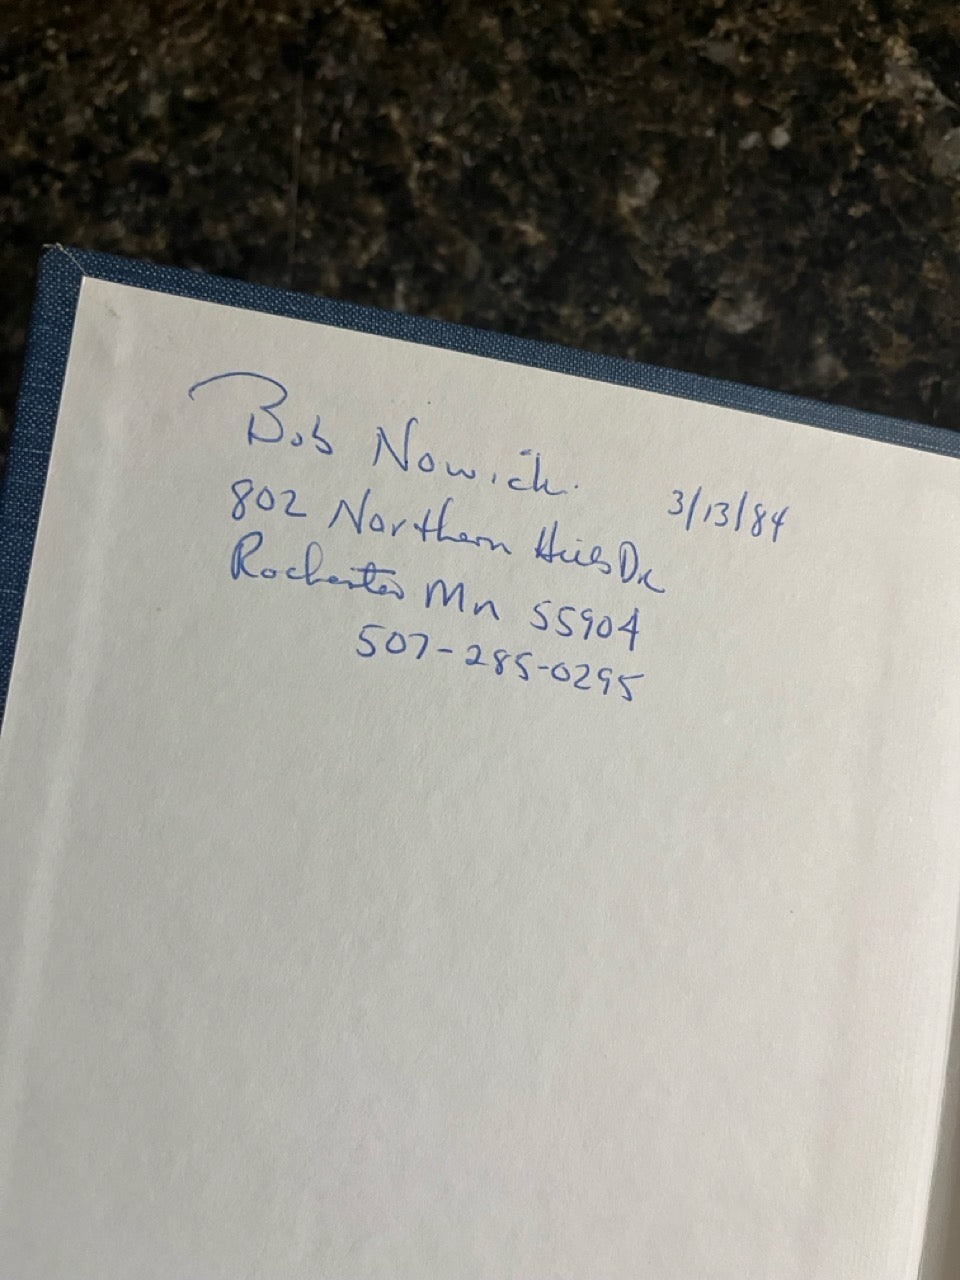 Bob Nowicki
3/13/84
802 Northern Hills Dr
Rochester Mn 55904
507-285-0295